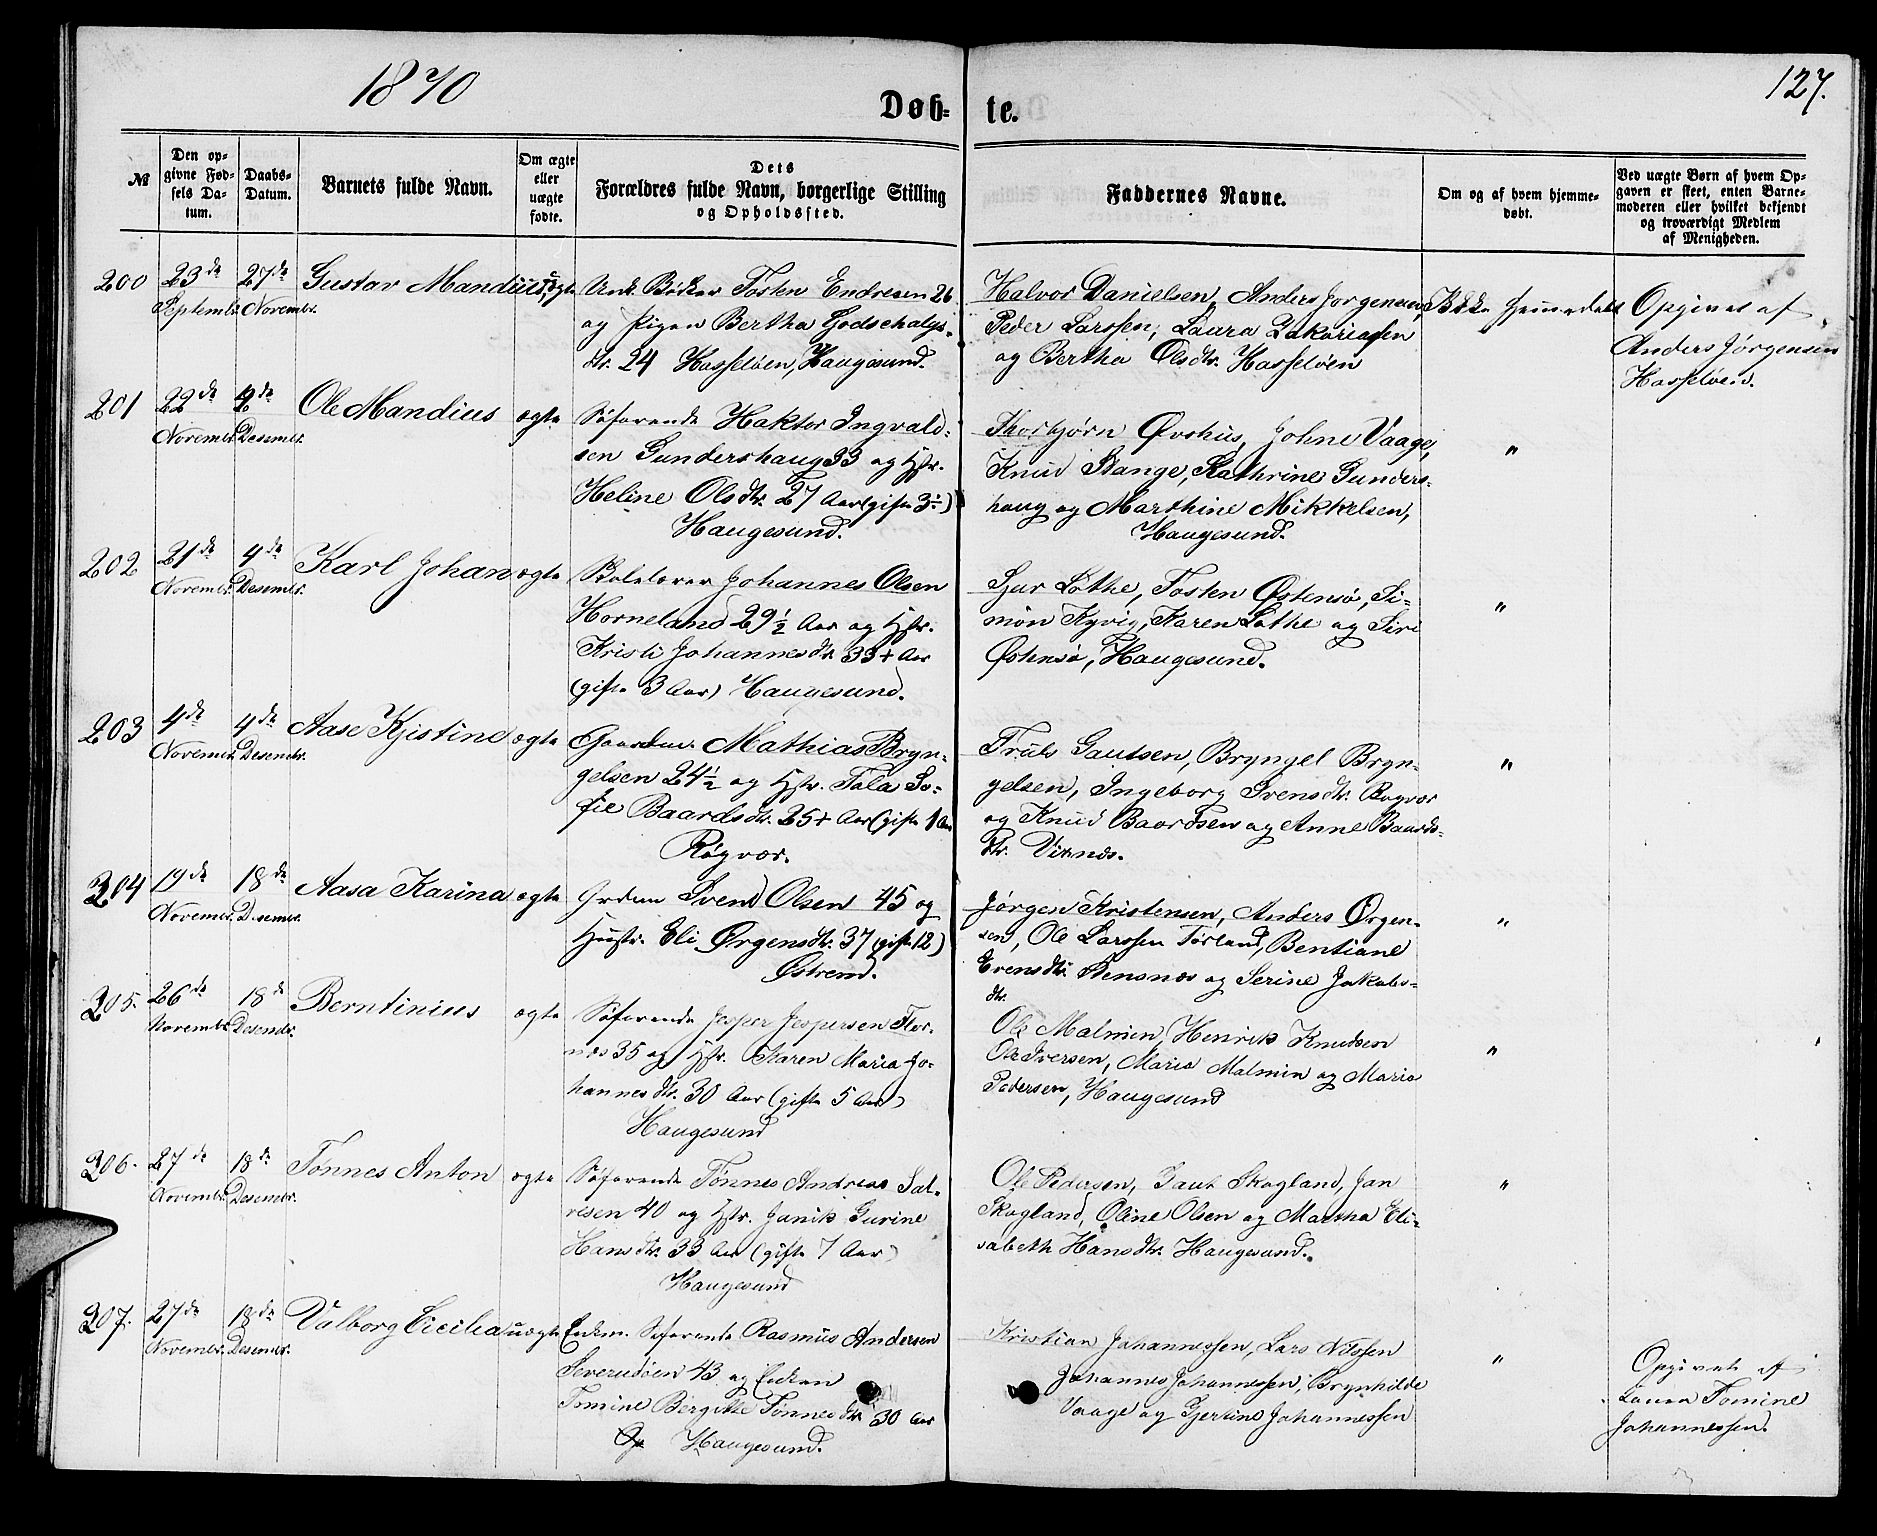 1870
127.
Døb- te.
№
Den op-
givne Fød-
sels Da-
tum.
Daabs-
Datum.
Barnets fulde Navn.
Om ægte
eller
uægte
fødte.
Dets
Forældres fulde Navn, borgerlige Stilling
og Opholdssted.
Faddernes Navne.
Om og af hvem hjemme-
døbt.
Ved uægte Børn af hvem Op-
gaven er skeet, enten Barne-
moderen eller hvilket bekjendt
og troværdigt Medlem
af Menigheden.
200
23de
Septembr.
27de
Novembr.
Gustav Mandius
uægte
Unk. Bødker Tosten Endresen 26
og Pigen Bertha Godschalgs-
dtr. 24 Hasseløen, Haugesund.
Halvor Danielsen, Anders Jørgensen,
Peder Larssen, Laura Zakariasen
og Bertha Olsdtr. Hasseløen
Ikke hjemmedøbt
Opgivet af
Anders Jørgensen
Hasseløen.
201
22de
Novembr.
4de
Desembr.
Ole Mandius
ægte
Søfarende Haktor Ingvald-
sen Gundershaug 33 og Hstr.
Heline Olsdtr. 27 Aar (gifte 3½)
Haugesund.
Thorbjørn Øvshus, Johne Vaage,
Knud Stange, Kathrine Gunders-
haug og Marthine Mikkelsen,
Haugesund.
"
202
21de
Novembr.
4de
Desembr.
Karl Johan
ægte
Skolelærer Johannes Olsen
Horneland 29½ Aar og Hstr.
Kristi Johannesdtr. 33+ Aar
(gifte 3 Aar) Haugesund.
Sjur Løthe, Tosten Østensø, Si-
mon Kyvig, Karen Løthe og Siri
Østensø, Haugesund.
"
203
4de
Novembr.
4de
Desembr.
Aase Kjistine
ægte
Gaardm. Mathias Bryn-
gelsen 24½ og Hstr. Tala So-
fie Baardsdtr. 25+ Aar (gifte 1 Aar
Røgvær.
Truls Gautsen, Bryngel Bryn-
gelsen, Ingeborg Svensdtr. Røgvær
og Knud Baardsen og Anne Baards-
dtr. Vixnes.
"
204
19de
Novembr.
18de
Desembr.
Aasa Karina
ægte
Grdm Svend Olsen 45 og
Hustr. Eli Ørgensdtr. 37 (gifte 12)
Østremd.
Jørgen Kristensen, Anders Ørgen-
sen, Ole Larssen Tørland, Bentiane
Evensdtr. Stensnes og Serine Jakobs-
dtr.
"
205.
26de
Novembr.
18de
Desembr.
Berntinius
ægte
Søfarende Jesper Jespersen Flor-
næs 35 og Hstr. Karen Maria Jo-
hannesdtr. 30 Aar (gifte 5 Aar)
Haugesund
Ole Malmin, Henrik Knudsen
Ole Iversen, Maria Malmin og Maria
Pedersen, Haugesund
"
206.
27de
Novembr.
18de
Desembr.
Tønnes Anton
ægte
Søfarende Tønnes Andreas Sal-
vesen 40 og Hstr. Janik Gurine
Hansdtr. 33 Aar (gifte 7 Aar)
Haugesund
Ole Pedersen, Gaut Skogland, Jan
Skogland, Oline Olsen og Martha Eli-
sabeth Hansdtr. Haugesund.
"
207.
27de
Novembr.
18de
Desembr.
Valborg Cicilia
uægte
Enkm. Søfarende Rasmus Andersen
43 og Enken
Tomine Bergitte Tønnesdtr. 30 Aar
Haugesund.
Kristian Johannessen, Lars Nilssen
Johannes Johannessen, Brynhilde
Vaage og Gjertine Johannessen
"
Opgivet af
Laura Tomine
Johannessen.